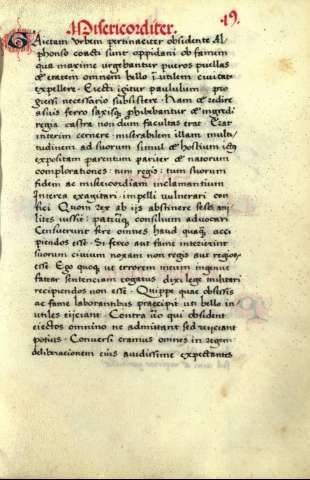 19.
Misericorditer.
Caietam urbem pertinaciter obsidente Al
phonso coacti sunt oppidani ob famem
qua maxime urgebantur pueros puellas
& etatem omnem bello inutilem ciuitate
expellere. Eiecti igitur paululum pro
gressi necessario subsistere. Nam & redire
a suis ferro saxisq; prohibebantur & ingredi
regia castra non dum facultas erat. Erat
interim cernere miserabilem illam multi
tudinem ad suorum simul & hostium ictus
expositam parentum pariter & natorum
complorationes: tum regis: tum suorum
fidem ac misericordiam inclamantium
Interea exagitari: impelli vulnerari con
fici. Quom rex ab ijs abstinere sese mi
lites iussit: patruq; consilium aduocari
Censuerunt fere omnes haud quaq; acci
piendos esse. Si ferro aut fame interierint
suorum ciuium noxam non regis aut regior
esse. Ego quoq; ut errorem meum ingenue
fatear sententiam rogatus dixi lege militari
recipiendos non esse. Quippe quae obsessis
ac fame laborantibus praecipit uti bello in
utiles eijciant. Contra uero qui obsident
eiectos omnino ne admittant sed reijciant
potius. Conuersi eramus omnes in regem
deliberationem eius auidissime expectantes